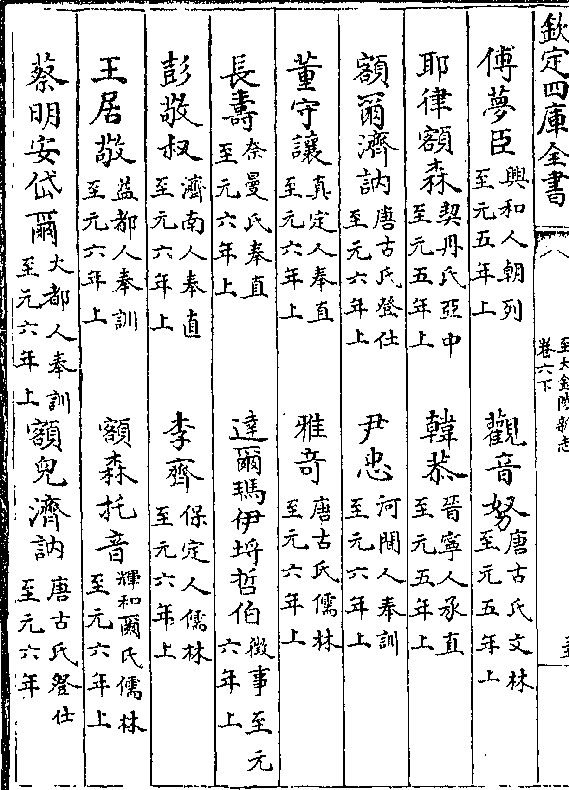 欽定四庫全書
至大金陵新志
卷六下
傅夢臣 興和人朝列至元五年上 觀音努 唐古氏文林至元五年上
耶律額森 契丹氏亞中至元五年上 韓恭 晉寧人承直至元五年上
額爾濟訥 唐古氏登仕至元六年上 尹忠 河間人奉訓至元六年上
董守讓 真定人奉直至元六年上 雅奇 唐古氏儒林至元六年上
長壽 奈曼氏奉直至元六年上 達爾瑪伊埒哲伯 徴事至元六年上
彭敬叔 濟南人奉直至元六年上 李齊 保定人儒林至元六年上
王居敬 益都人奉訓至元六年上 額森托音 輝和爾氏儒林至元六年上
蔡明安岱爾 大都人奉訓至元六年上 額兒濟訥 唐古氏登仕至元六年